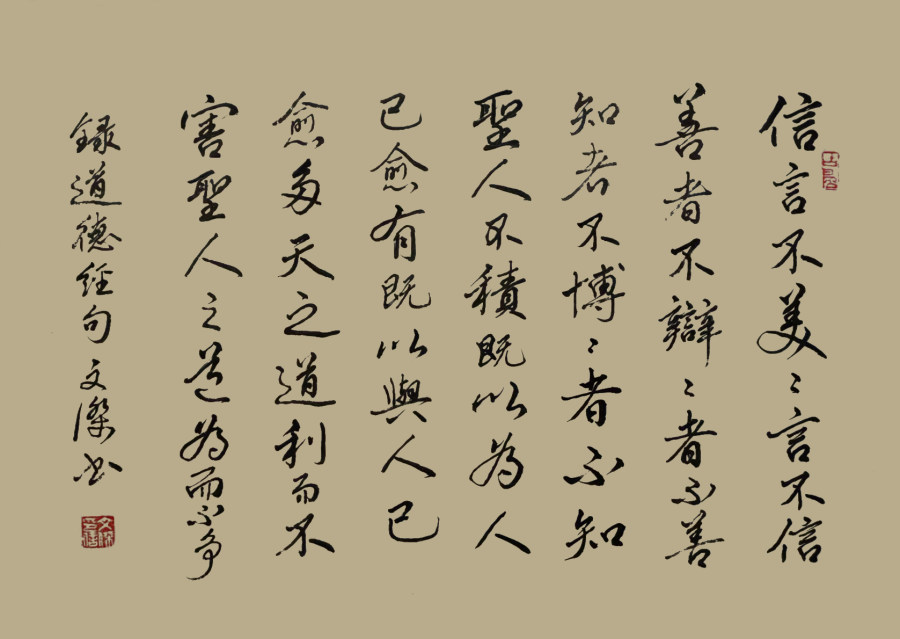 信言不美〻言不信
善者不辯〻者不善
知者不博〻者不知
聖人不積既以為人
己愈有既以與人己
愈多天之道利而不
害聖人之道為而不争
録道德経句文傑书